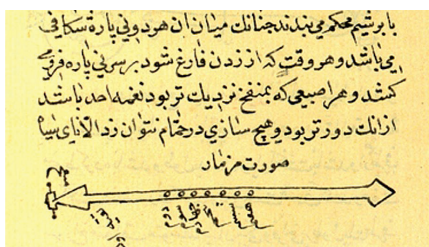 با برشم محکم می‌بندند چنانک میان ان هر دو نی پارۀ شکافی
می باشد و هر وقت که از زدن فارغ شود بر سر نی پاره فرو می
کشد و هر اصبعی که بمنفخ نزدیک تر بود نغمه احد باشد
ازانک دور تر بود و هیچ سازی در حمام نتوان زد الا نای سیاه
صورت مزمار